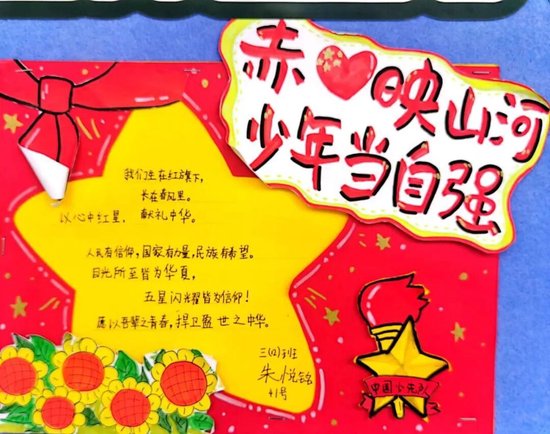 赤❤映山河
少年当自强
我们生在红旗下,
长在春风里。
以心中红星, 献礼中华。
人民有信仰,国家有力量,民族有希望。
目光所至皆为华夏,
五星闪耀皆为信仰!
愿以吾辈之青春,捍卫盈世之中华。
三(四)班
朱悦铭
41号
中国少先队